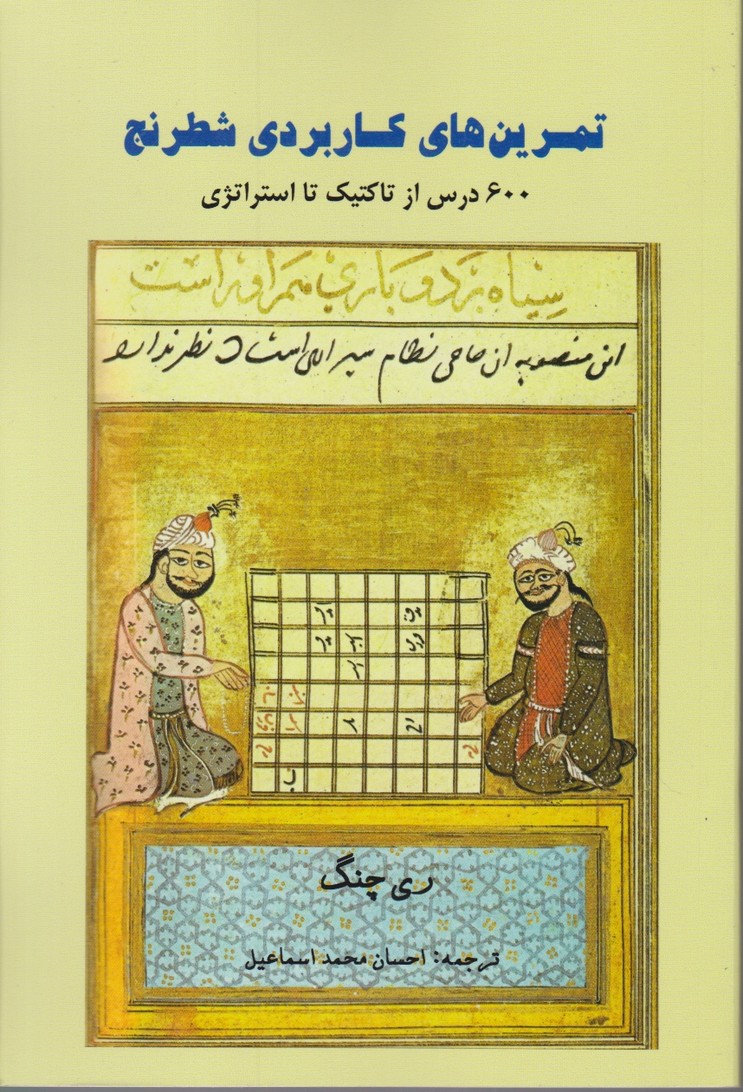 تمرین‌های کاربردی شطرنج
۶۰۰ درس از تاکتیک تا استراتژی
سیاه بزد و بازی همراوراست
این منصوبه از حاجی نظام شیرازی است و نظیر ندارد
ری چنگ
ترجمه: احسان محمد اسماعیل